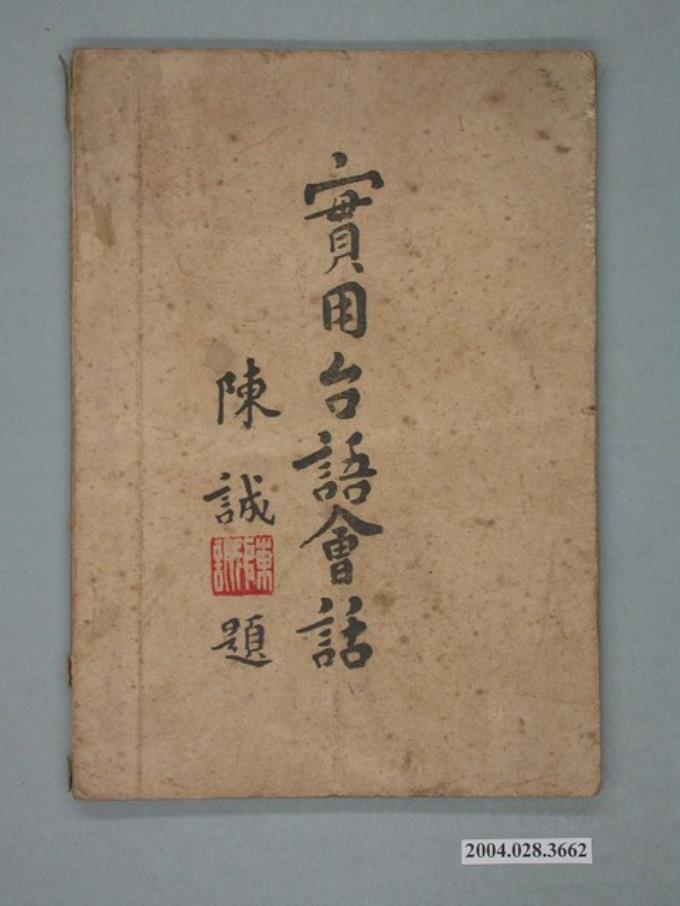 實用台語會話
陳誠題
陳誠
2004.028.3662